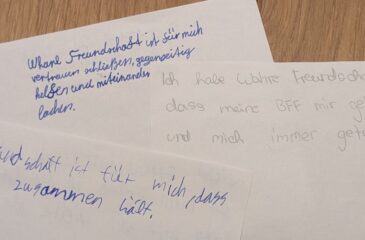 Whare Freundschaft ist für mich
vertrauen schließen, gegenseitig
helfen und miteinander
lachen.
Ich habe Wahre Freundscha
dass meine BFF mir ge
und mich immer getr
undschaft ist für mich, dass
zusammen hält.